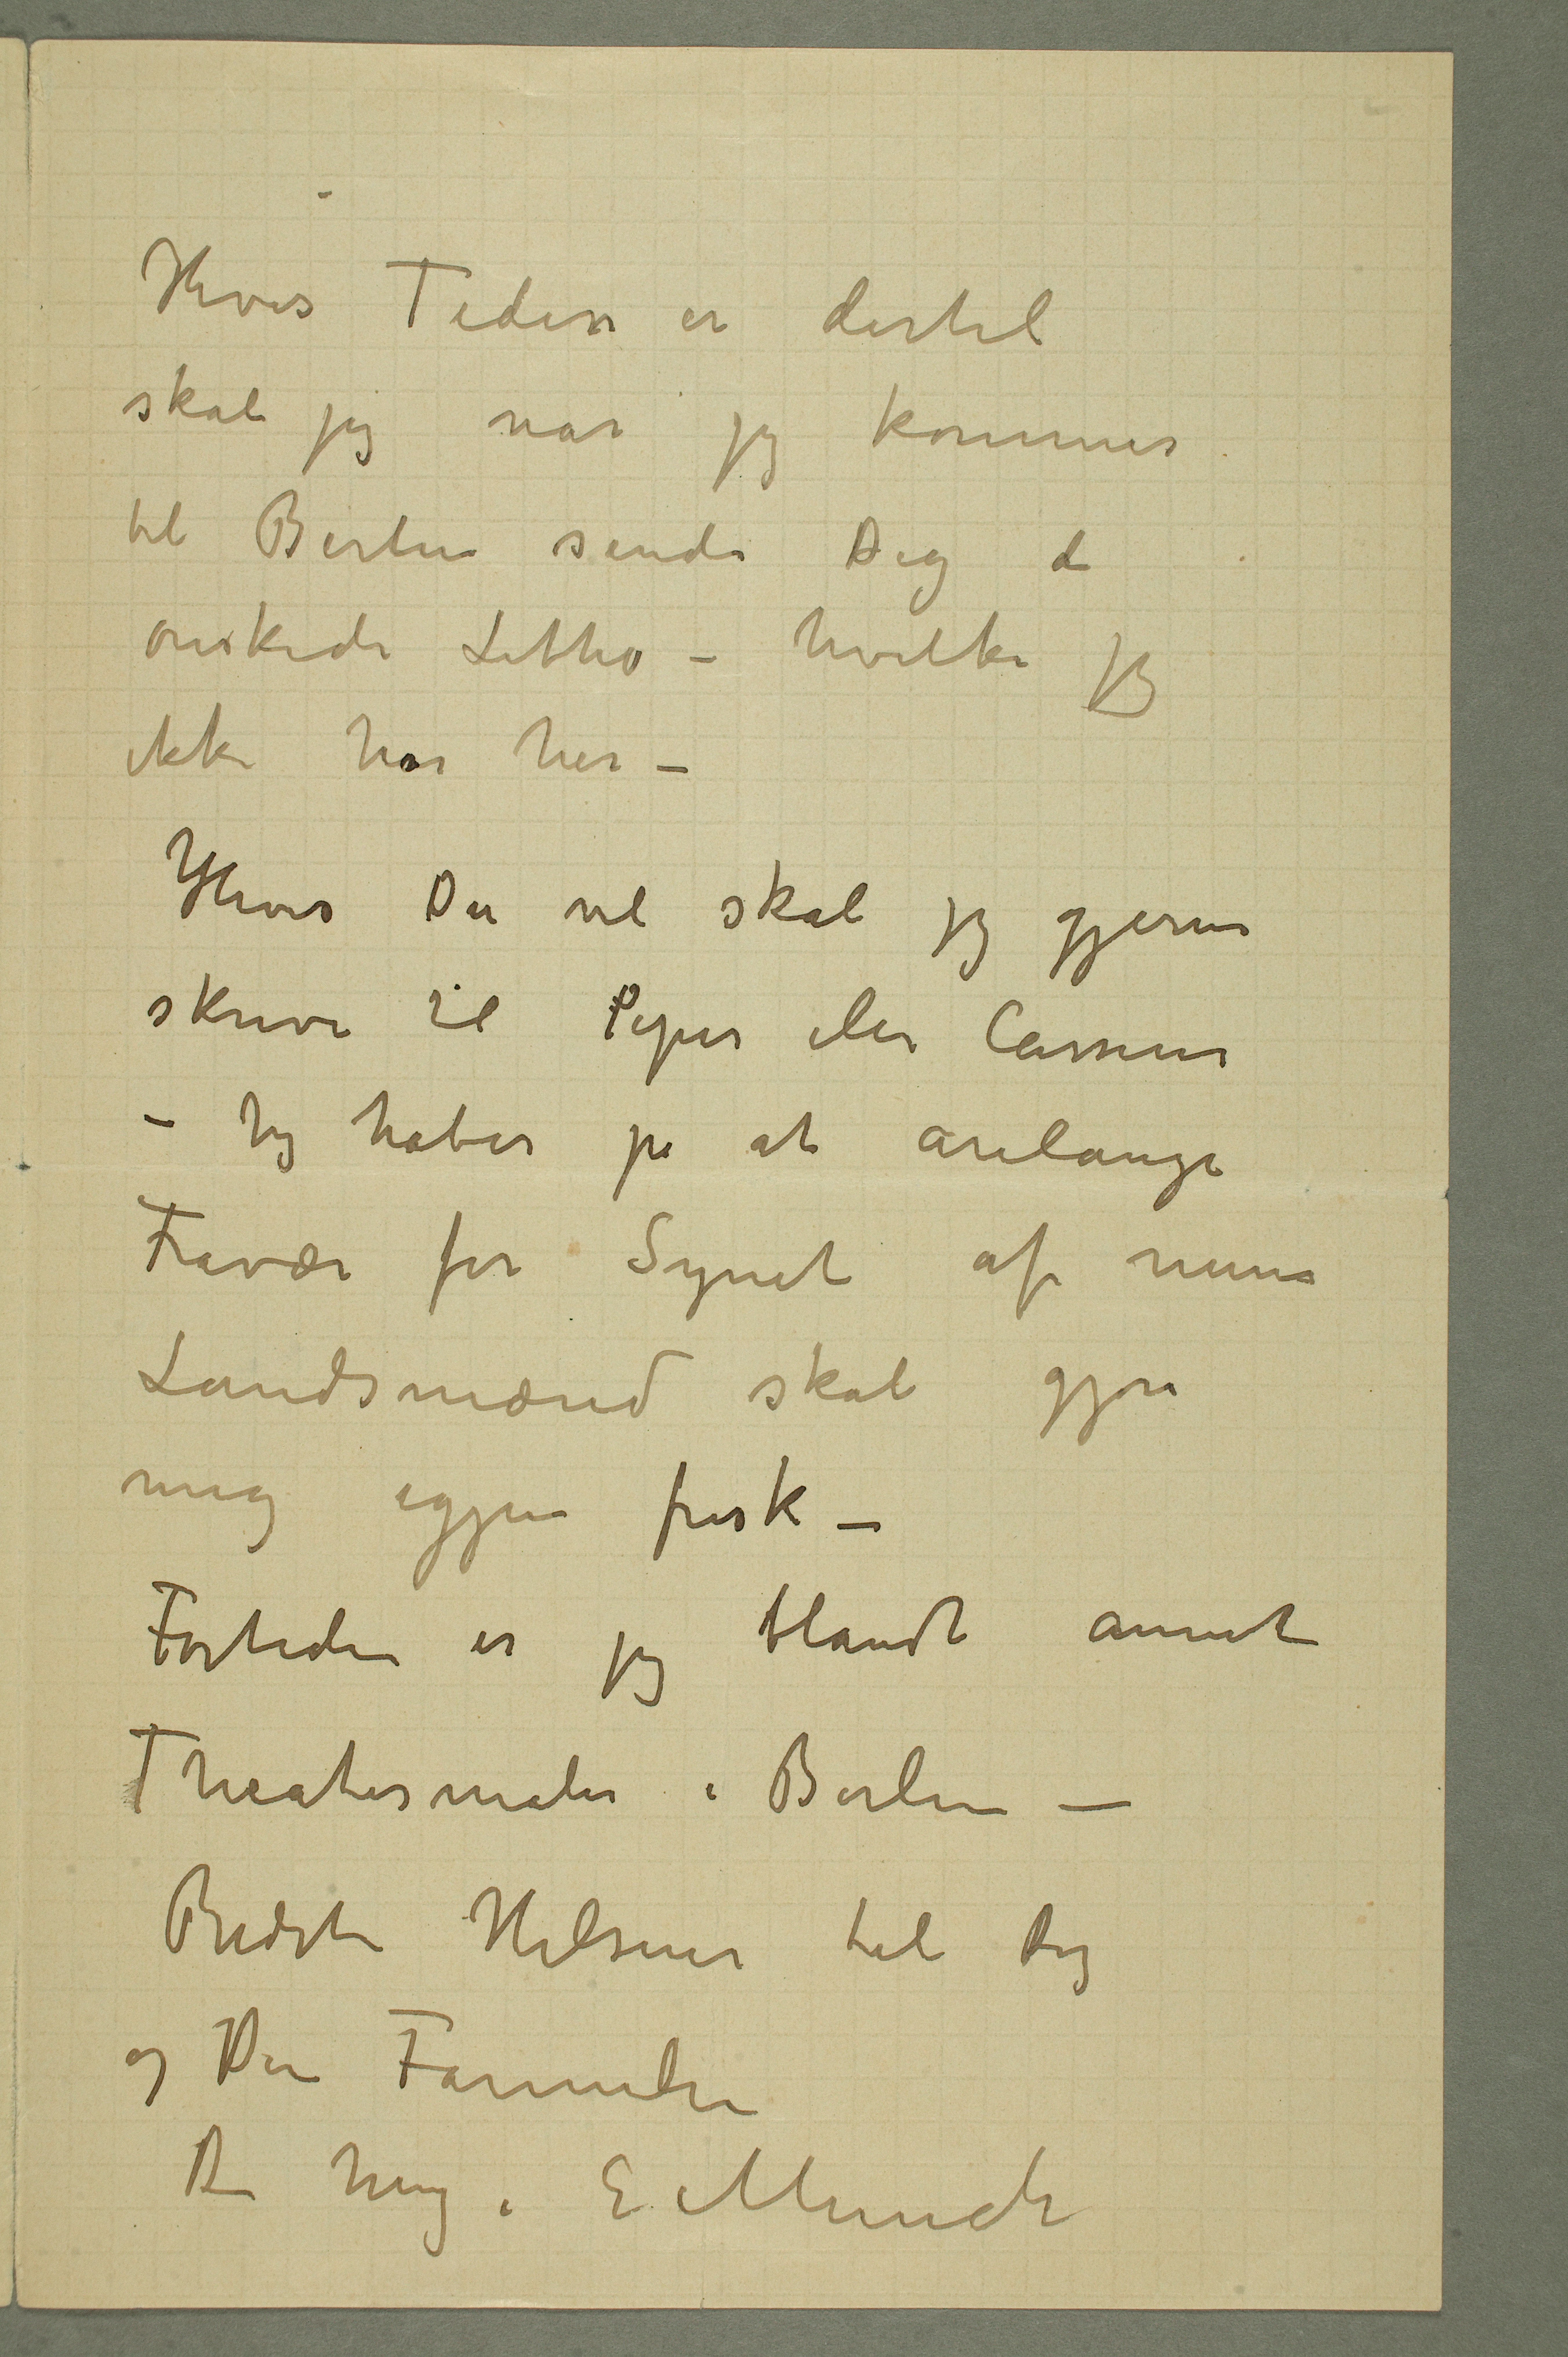 Hvis Tiden er dertil
skal jeg når jeg kommer
til Berlin sende Dig de
ønskede Litho – hvilke jeg
ikke har her –
Hvis Du vil skal jeg gjerne
skrive til eller Cassirer
– Jeg håber på at årelange
Fravær for Synet af mine
Landsmænd skal gjøre
mig igjen frisk –
Fortiden er jeg blandt annet
Theatermaler i Berlin –
Bedste Hilsener til Dig
og Din Familie
Din heng. E Munch